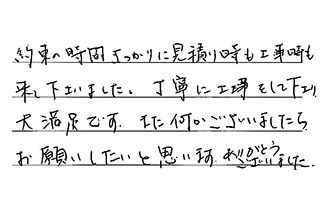 約束の時間きっかりに見積り時も工事時も
来て下さいました。丁寧に工事をして下さり
大満足です。また何かございましたら
お願いしたいと思います。ありがとうございました。